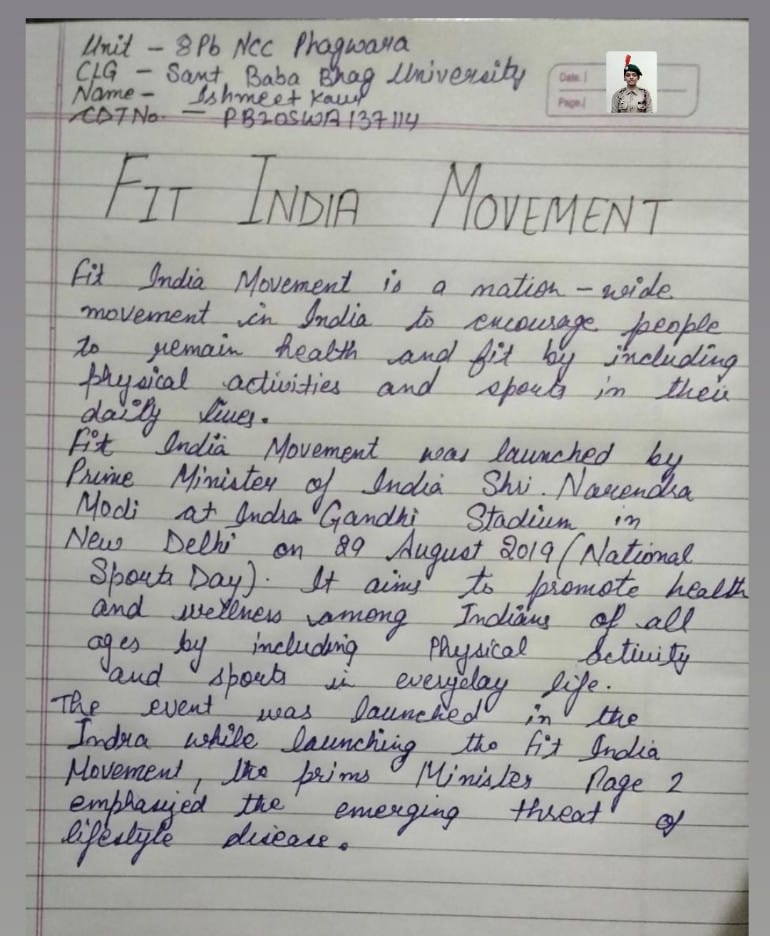 Unit - 8Pb NCC Phagwara
CLG - Sant Baba Bhag University
Name - Ishmeet Kaur
CDT No. - PB20SWA137114
Date.
Page.
FIT INDIA MOVEMENT
Fit India Movement is a nation-wide
movement in India to encourage people
to remain health and fit by including
physical activities and sports in their
daily lives.
Fit India Movement was launched by
Prime Minister of India Shri. Narendra
Modi at Indra Gandhi Stadium in
New Delhi on 29 August 2019 (National
Sports Day). It aims to promote health
and wellness among Indians of all
ages by including Physical Activity
and sports in everyday life.
The event was launched in the
Indra while launching the Fit India
Movement, the prims Minister Page 2
emphasized the emerging threat of
lifestyle disease.